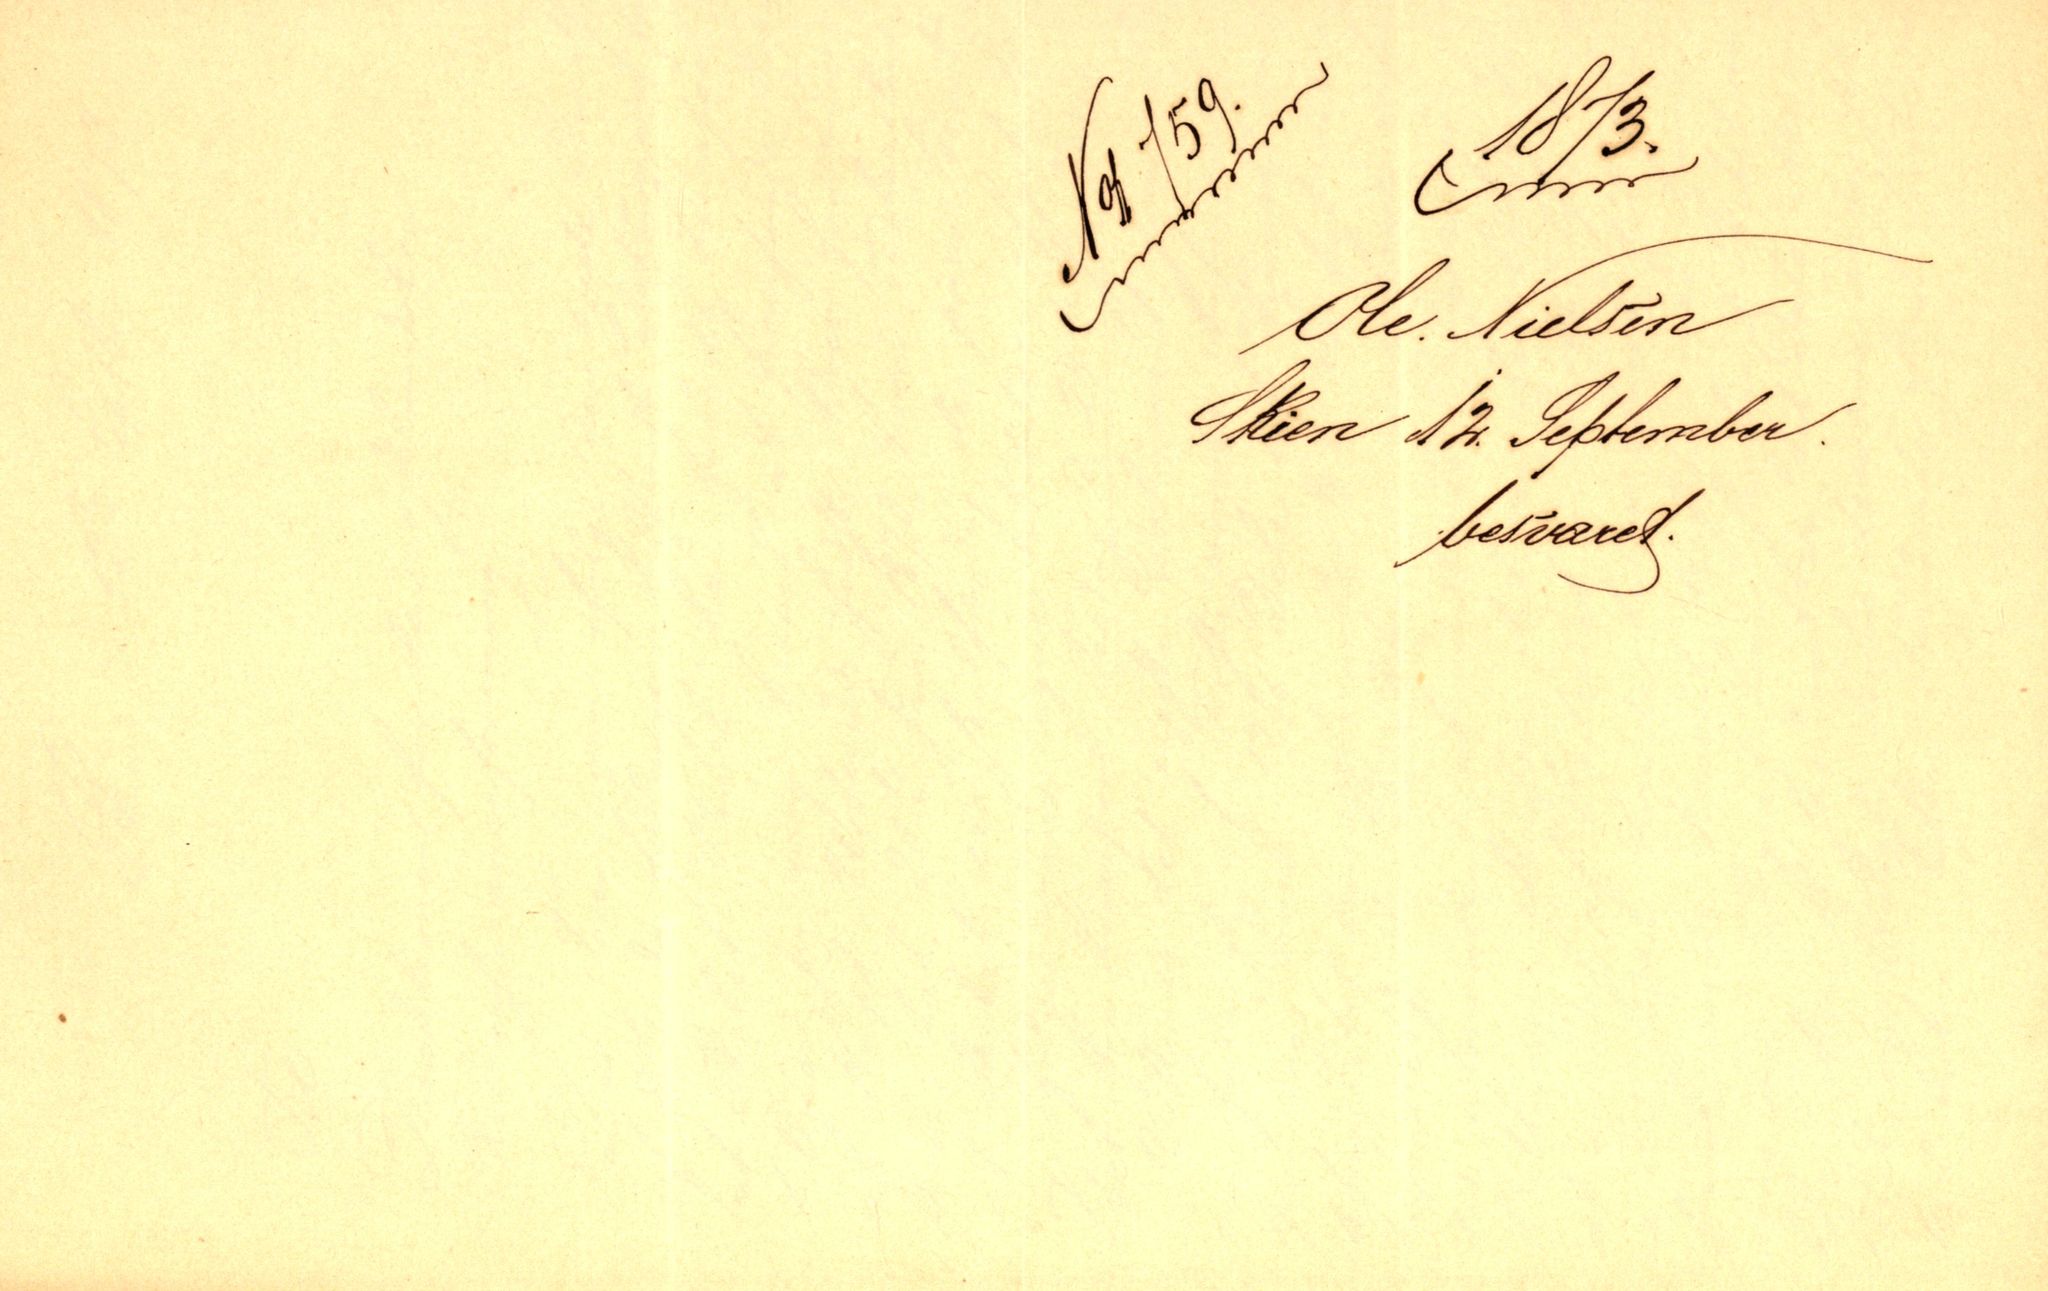 No 759.
1873.
Ole. Nielsen
Skien 12. September.
besvaret.